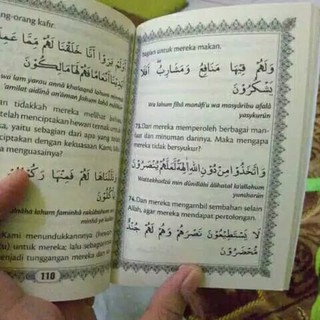 ng-orang kafir.
أَوَلَمْ يَرَوْا أَنَّا خَلَقْنَا لَهُمْ مِّمَّا عَمِلَ
أَيْدِينَا أَنْعَامًا فَهُمْ لَهَا مَالِكُونَ
wa lam yarou annâ khalaqnâ lahum
'amilat aidînâ an'âman fahum lahâ
tidakkah mereka melihat
telah menciptakan hewan ternak untuk
yaitu sebagian dari apa yang
dengan kekuasaan Kami, la
menguasainya?
وَذَلَّلْنَاهَا لَهُمْ فَمِنْهَا رَكُوبُ
يَأْكُلُونَ
lahum faminhâ rakûbuhum
Kami menundukkannya (hewan
tu) untuk mereka; lalu sebagiannya
menjadi tunggangan mereka dan
110
bagian untuk mereka makan.
وَلَهُمْ فِيهَا مَنَافِعُ وَمَشَارِبُ أَفَلَا
يَشْكُرُونَ
Wa lahum fîhâ manâfi'u wa masyâribu afalâ
yasykurûn
73. Dan mereka memperoleh berbagai man-
faat dan minuman darinya. Maka mengapa
mereka tidak bersyukur?
وَاتَّخَذُوا مِنْ دُونِ اللهِ آلِهَةً لَّعَلَّهُمْ يُنْصَرُونَ
Wattakhadzû min dûnillâhi âlihatal la'allahum
yunsharûn
74. Dan mereka mengambil sembahan selain
Allah, agar mereka mendapat pertolongan.
لَا يَسْتَطِيعُونَ نَصْرَهُمْ وَهُمْ لَهُمْ جُنْدٌ
مُّحْضَرُونَ